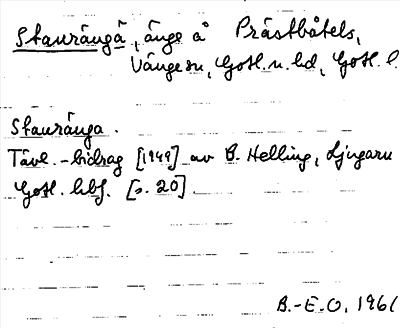 Stauränga, änge å Prästbåtels,
Vänge sn, Gotl. n. hd, Gotl. l.
Stauränga.
Tävl.-bidrag [1949] av B. Helling, Ljugarn
Gotl. hbf. [s. 20].
B.-E.O. 1961